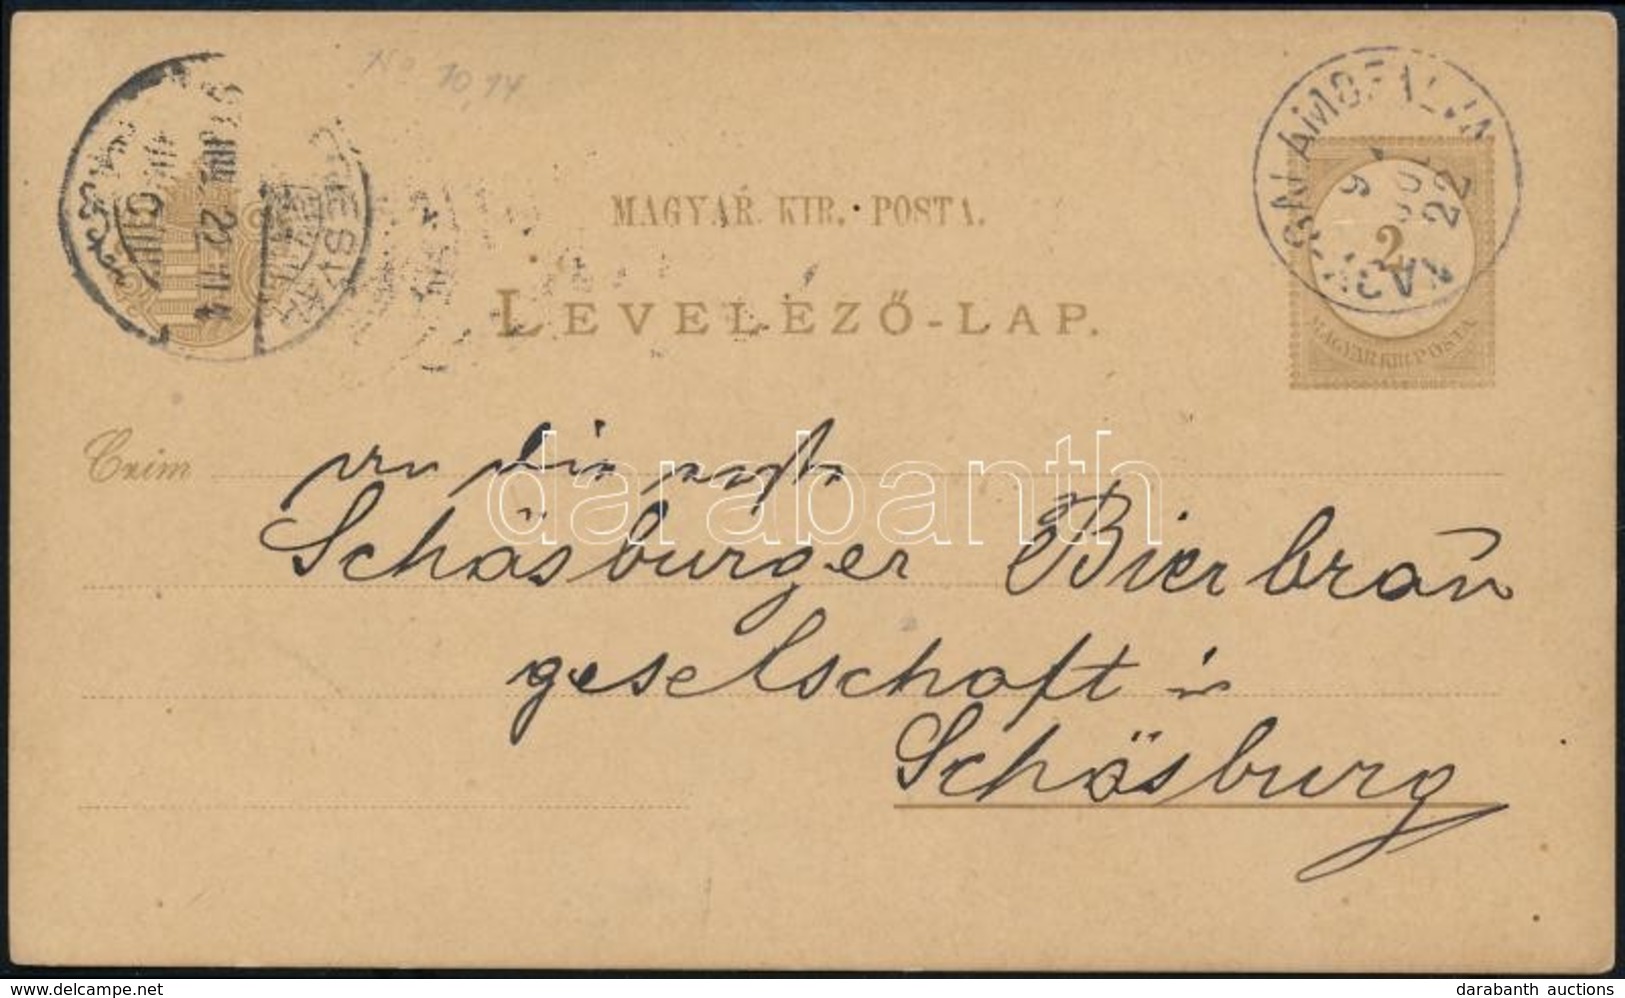 No 10,14
NAGYGALAMBFALVA
MAGYAR KIR. POSTA.
LEVELEZŐ-LAP.
2
MAGYAR KIR. POSTA
Czim
an die erste
Schäsburger Bierbraū
geselschaft in
Schäsburg
darabanth
www.delcampe.net
darabanth auctions